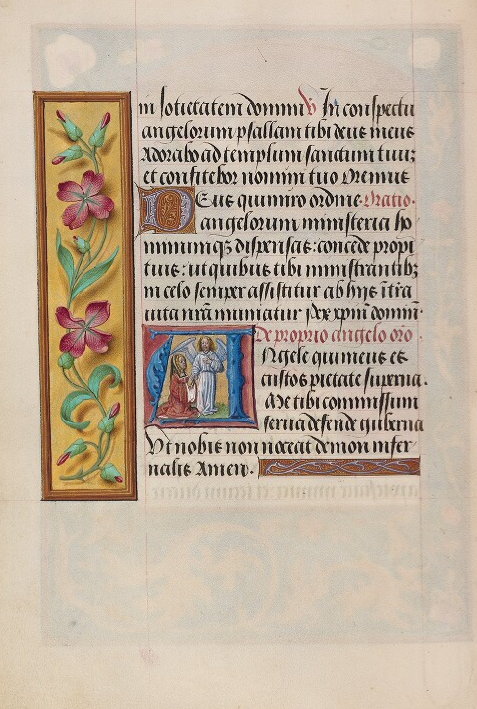 in societatem domini V In conspectu
angelorum psallam tibi deus meus
Adorabo ad templum sanctum tuum
et confitebor nomini tuo Oremus
Deus qui miro ordine Oratio.
angelorum ministeria ho
minumqz dispensas: concede propi
tius: ut quibus tibi ministrantibz
in celo semper assistitur ab hijs in tra
uita nra muniatur Per xpm dominū.
De proprio angelo oro
Angele qui meus es
custos pietate superna.
Me tibi commissum
serua defende guberna
Vt nobis non noceat demon infer
nalis Amen.